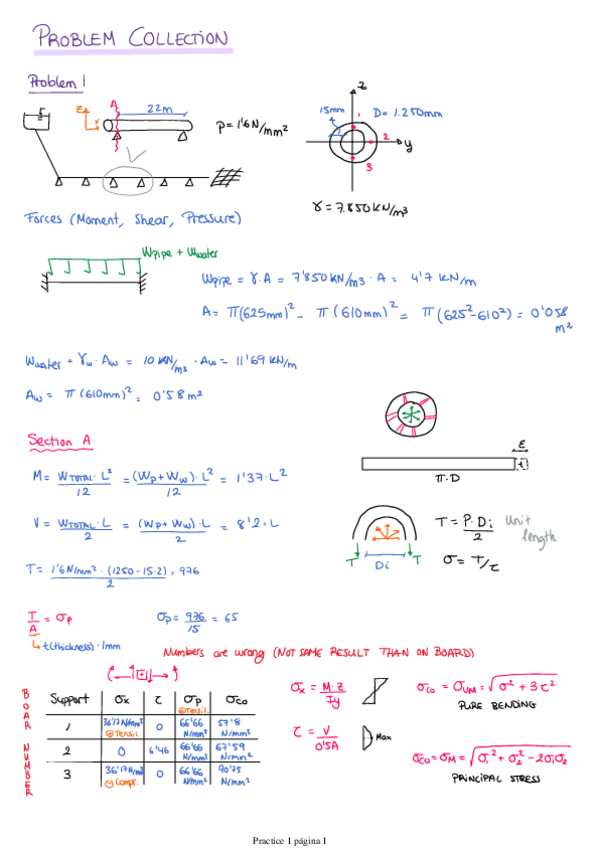 PROBLEM COLLECTION
Problem 1
A
22m
P = 1'6 N/mm²
z
15mm
D = 1.250mm
1
2
y
3
γ = 7.850 KN/m³
Forces (Moment, Shear, Pressure)
Wpipe + Wwater
Wpipe = γ · A = 7'850 KN/m3 · A = 4'7 KN/m
A = π(625mm)² - π(610mm)² = π(625² - 610²) = 0'058 m²
Wwater = γw · Aw = 10 KN/m3 · Aw = 11'69 KN/m
Aw = π(610mm)² = 0'58 m²
Section A
ε
π·D
M = WTOTAL · L² / 12 = (Wp + Ww) · L² / 12 = 1'37 · L²
V = WTOTAL · L / 2 = (Wp + Ww) · L / 2 = 8'2 · L
T = P · Di / 2 Unit length
T
Di
T
σ = T/τ
T = 1'6 N/mm² · (1250 - 15·2) / 2 = 976
T / A = σp
σp = 976 / 15 = 65
t (thickness) · 1mm
Numbers are wrong (NOT SAME RESULT THAN ON BOARD)
BOARD NUMBER
Support σx τ σp σco
⊕Tensil.
1 36'17 N/mm² ⊕Tensil 0 66'66 N/mm² 57'8 N/mm²
2 0 6'46 66'66 N/mm² 67'59 N/mm²
3 36'17 N/mm² ⊖Compr. 0 66'66 N/mm² 90'75 N/mm²
σx = M · z / Iy
τ = V / 0'5A
Max
σco = σVM = √σ² + 3τ²
PURE BENDING
σco = σM = √σ1² + σ2² - 2σ1σ2
PRINCIPAL STRESS
Practice 1 página 1